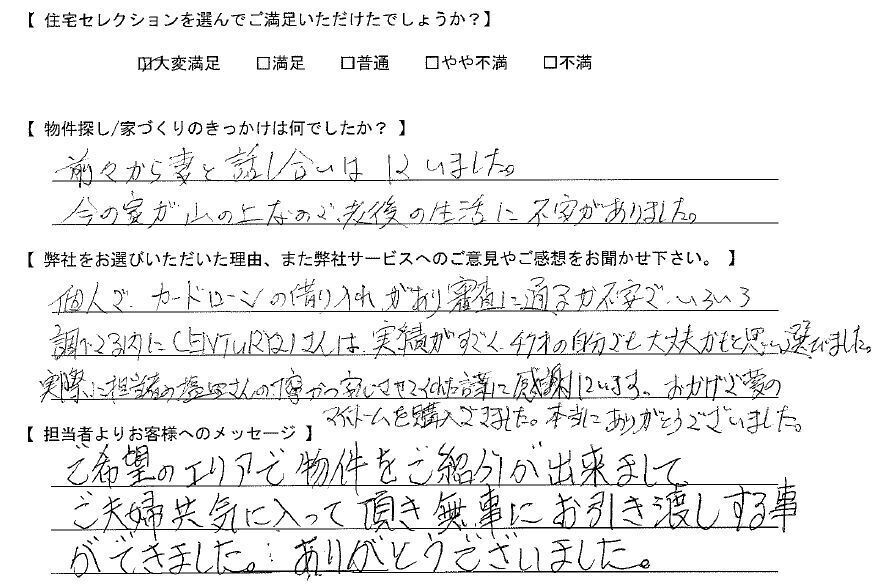 【 住宅セレクションを選んでご満足いただけたでしょうか？】
☑大変満足 □満足 □普通 □やや不満 □不満
【 物件探し/家づくりのきっかけは何でしたか？ 】
前々から妻と話し合いはしていました。
今の家が山の上なので老後の生活に不安がありました。
【 弊社をお選びいただいた理由、また弊社サービスへのご意見やご感想をお聞かせ下さい。 】
個人で、カードローンの借り入れがあり審査に通るか不安で、いろいろ
調べてる内にCENTURY21さんは、実績がすごく、の自分でも大丈夫かもと思い選びました。
実際に担当者の塩田さんの丁寧かつ安心させてくれた言葉に感謝しています。おかげで夢の
マイホームを購入できました。本当にありがとうございました。
【 担当者よりお客様へのメッセージ 】
ご希望のエリアで物件をご紹介が出来まして
ご夫婦共気に入って頂き無事にお引き渡しする事
ができました。ありがとうございました。